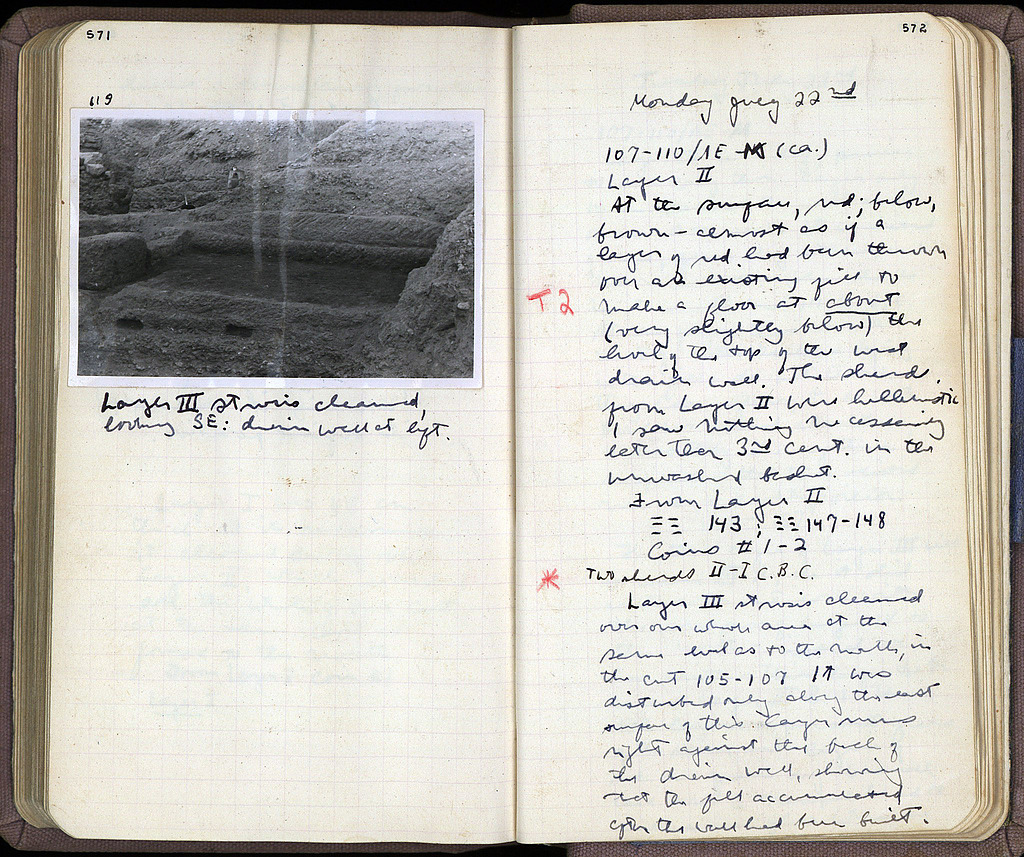 571
119
Layer III strosis cleaned,
looking SE: drain wall at left.
572
Monday July 22nd
107-110/ΛE (ca.)
Layer II
At the surface, red; below,
brown - almost as if a
layer of red had been thrown
over an existing fill to
T2
make a floor at about
(very slightly below) the
level of the top of the west
drain wall. The sherds
from Layer II were hellenistic
I saw nothing necessarily
later than 3rd cent. in the
unwashed basket.
From Layer II
ΞΞ 143 ; ΞΞ 147-148
Coins # 1-2
* Two sherds II-I C.B.C.
Layer III strosis cleaned
over our whole area at the
same level as to the north, in
the cut 105-107 It was
disturbed only along the east
surface of this. Layer runs
right against the back of
the drain wall, showing
that the fill accumulated
after the wall had been built.